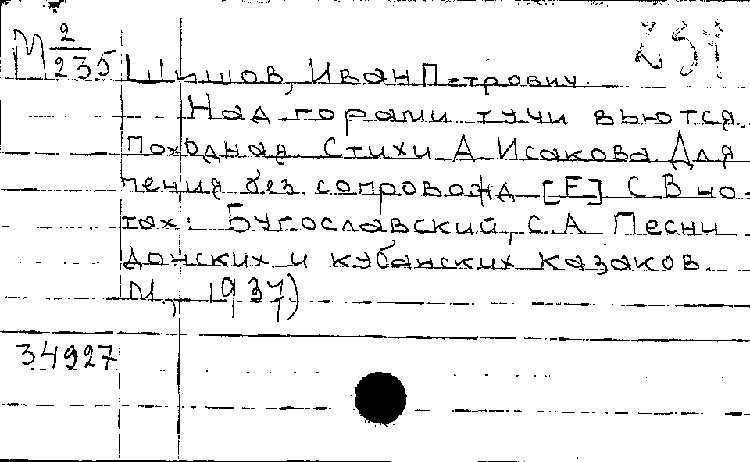 М 2/235
Шишов, Иван Петрович.
Над горами тучи вьются
Походная Стихи А Исакова Для
пения без сопровожд [F] С В но-
тах: Бугославский, С. А Песни
донских и кубанских казаков.
М, 1937)
34927